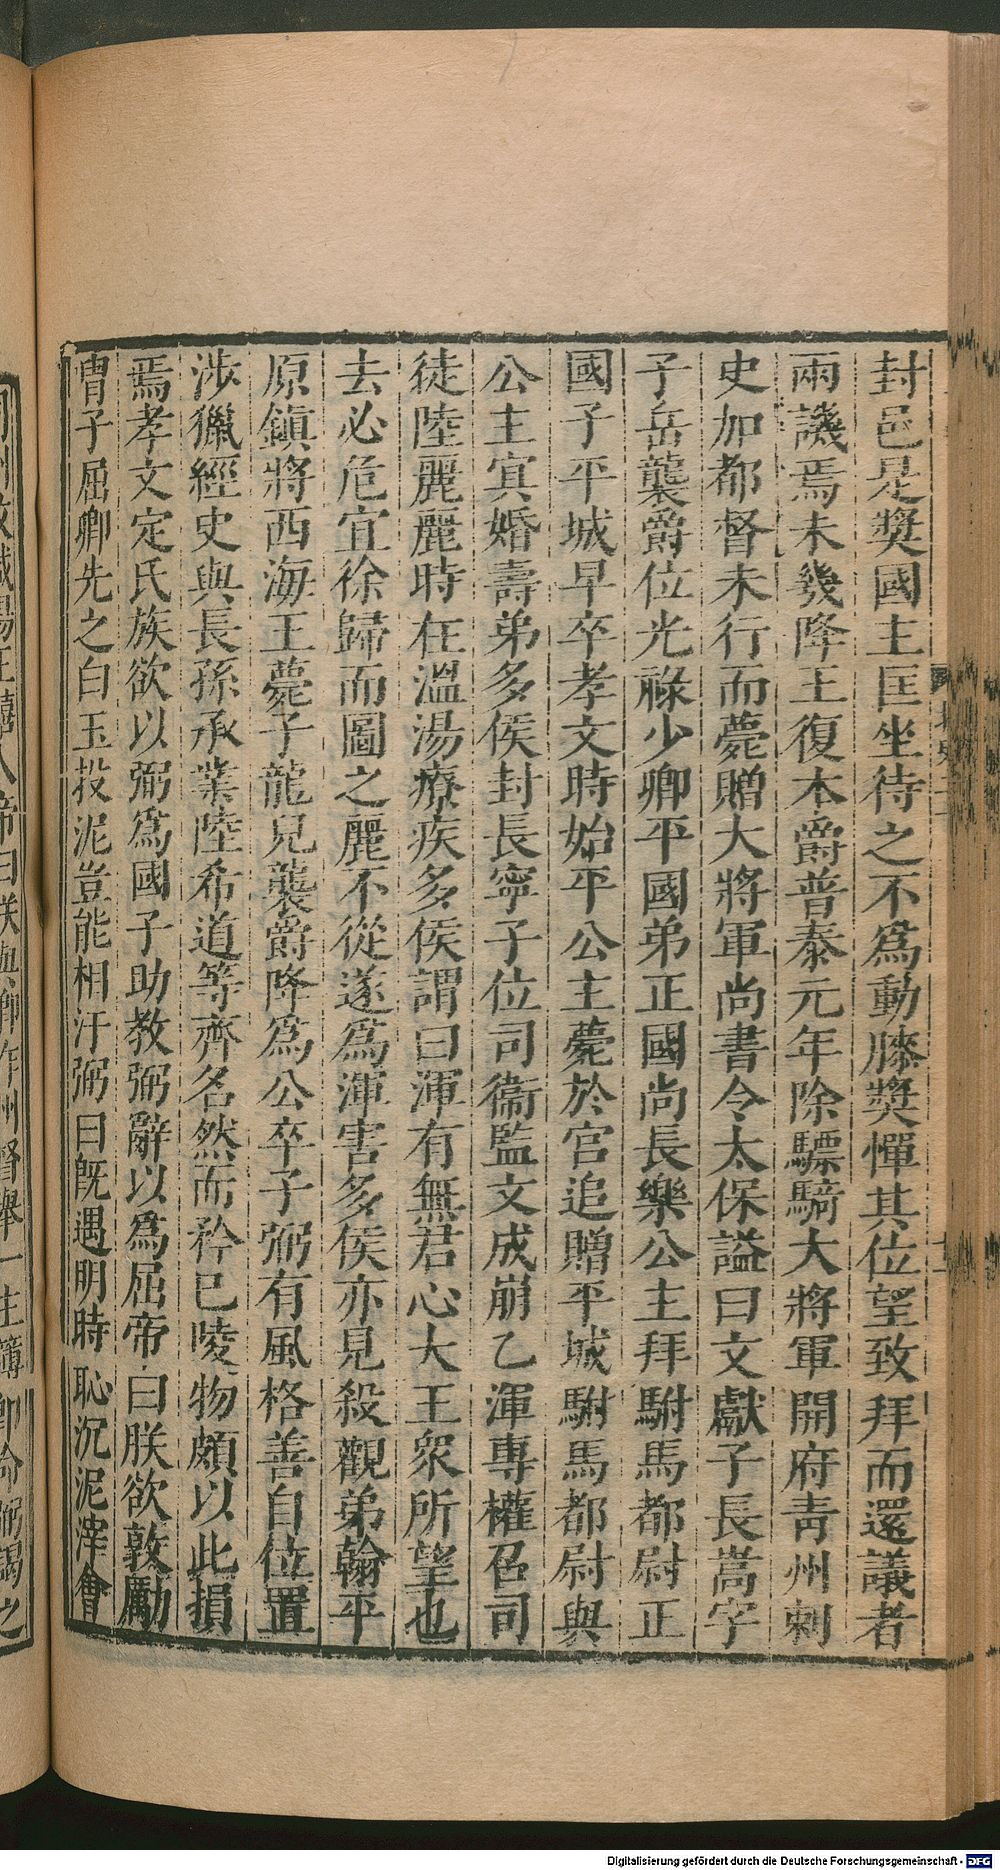 封邑是奬國主匡坐待之不爲動膝奬憚其位望致拜而還議者
兩譏焉未幾降王復本爵普泰元年除驃騎大將軍開府靑州刺
史加都督未行而薨贈大將軍尚書令太保謚曰文獻子長嵩字
子岳襲爵位光祿少卿平國弟正國尚長樂公主拜駙馬都尉正
國子平城早卒孝文時始平公主薨於官追贈平城駙馬都尉與
公主㝠婚壽弟多侯封長寧子位司衞監文成崩乙渾專權召司
徒陸麗麗時在溫湯療疾多侯謂曰渾有無君心大王衆所望也
去必危宜徐歸而圖之麗不從遂爲渾害多侯亦見殺觀弟翰平
原鎮將西海王薨子龍兒襲爵降爲公卒子弼有風格善自位置
涉獵經史與長孫承業陸希道等齊名然而矜已陵物頗以此損
焉孝文定氏族欲以弼爲國子助教弼辭以爲屈帝曰朕欲敦勵
胄子屈卿先之白玉投泥豈能相汙弼曰旣遇明時恥沉泥滓會
王禧入帝曰朕與卿作州督舉一主簿卽命弼謁之
Digitalisierung gefördert durch die Deutsche Forschungsgemeinschaft - DFG